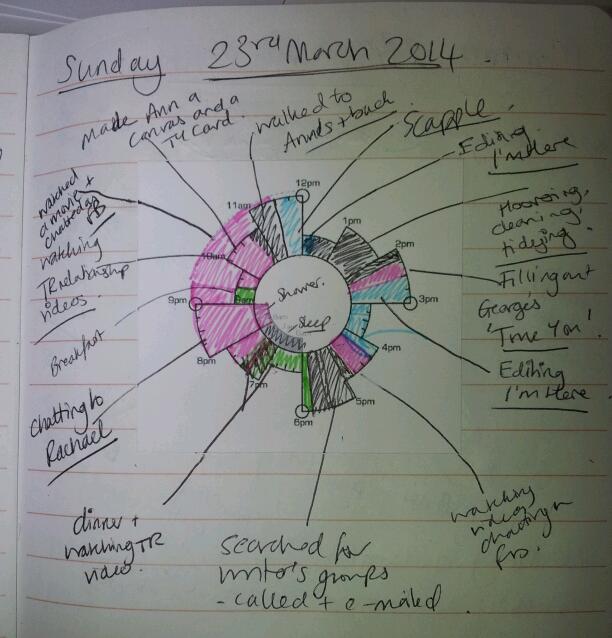 Sunday 23rd March 2014
Made Ann a
canvas and a
TY card.
walked to
Anns + back
Scapple.
Editing
I'm Here
Hoovering,
cleaning,
tidying.
Filling out
George's
'True You'
Editing
I'm Here
watching
videos
chatting on
searched for
writer's groups
- called + e-mailed.
dinner +
watching TR
video.
Chatting to
Rachael
Breakfast
watching
TR relationship
videos.
watched
a movie +
chatted on
FB
12pm
1pm
2pm
3pm
4pm
5pm
6pm
7pm
8pm
9pm
10am
11am
shower.
sleep